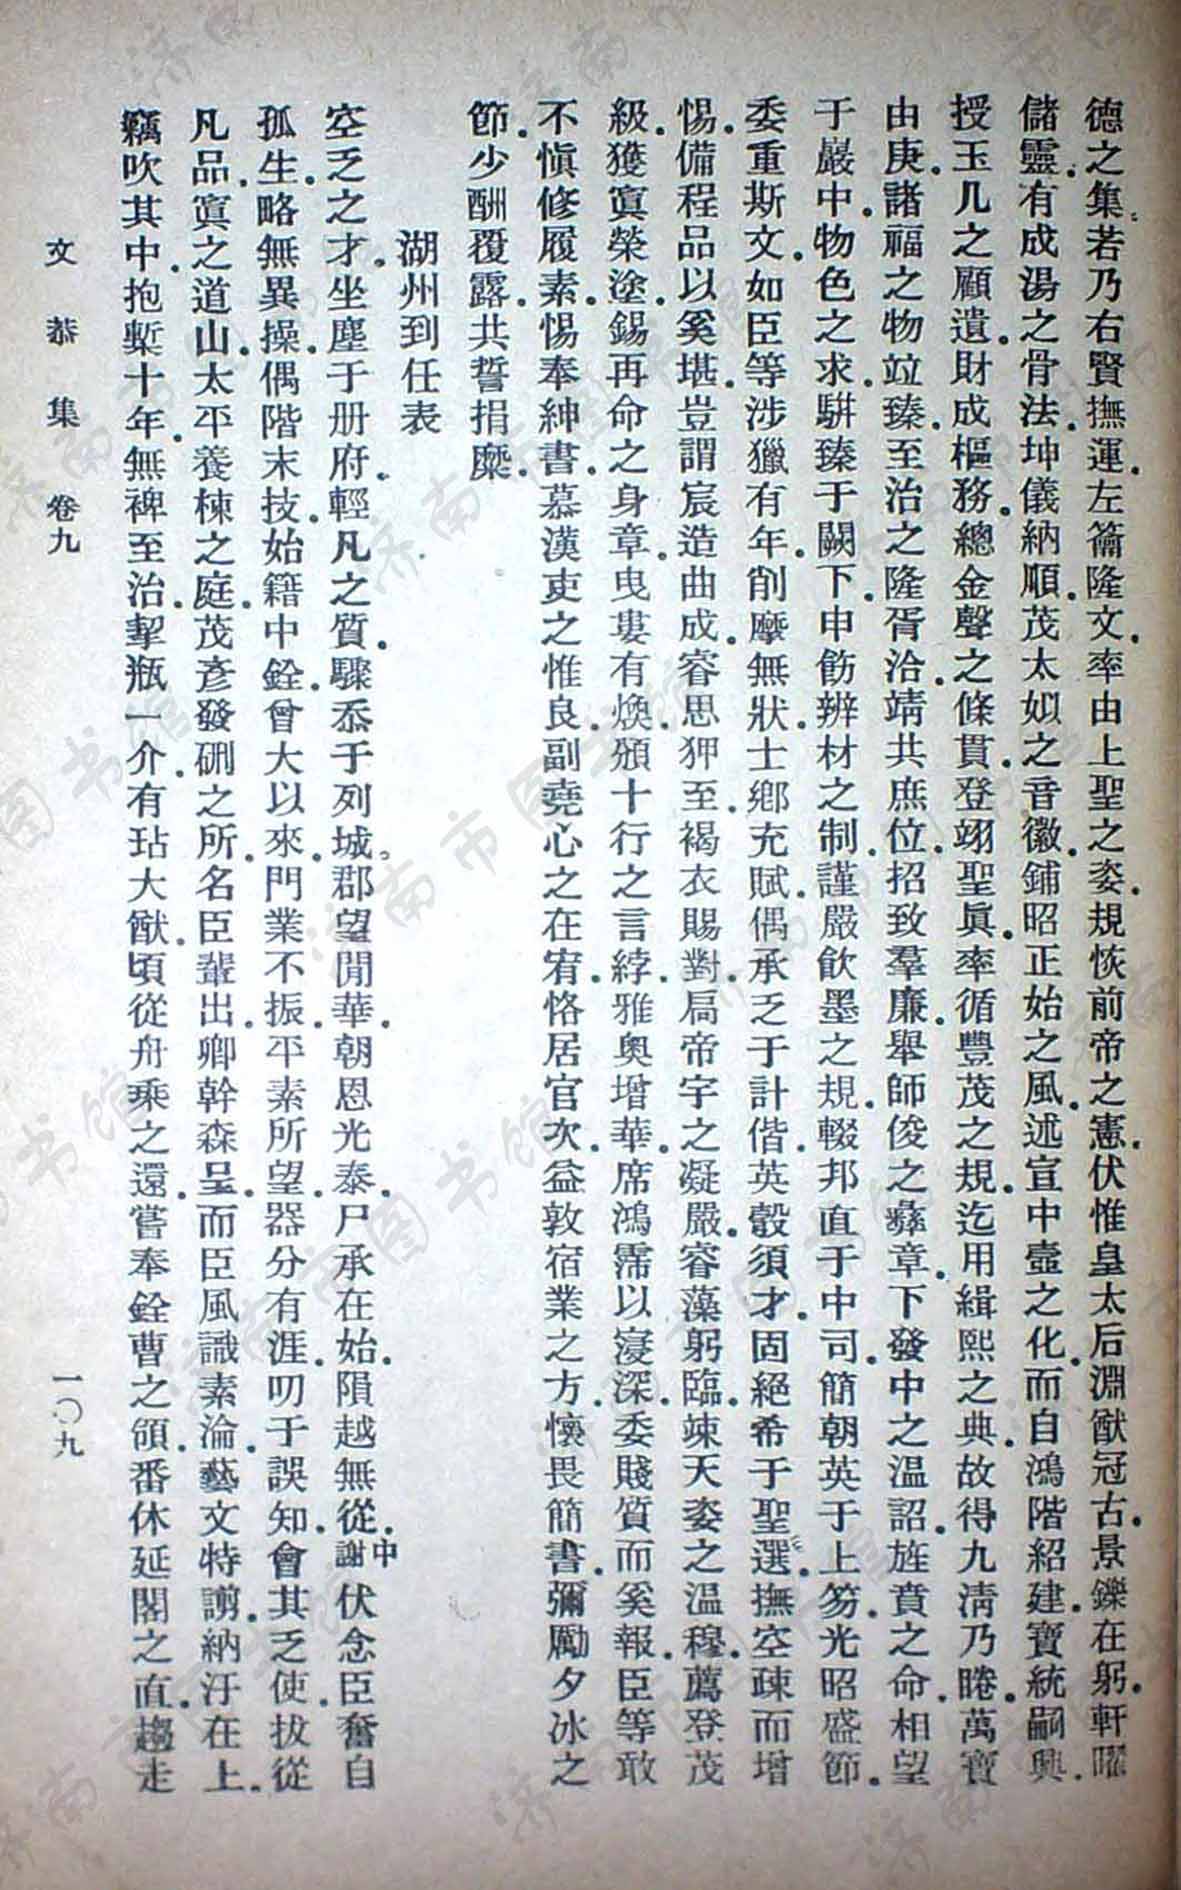 德之集。若乃右賢撫運。左籥隆文。率由上聖之姿。規恢前帝之憲。伏惟皇太后淵猷冠古。景鑠在躬。軒曜
儲靈。有成湯之骨法。坤儀納順。茂太姒之音徽。鋪昭正始之風。述宣中壼之化。而自鴻階紹建。寶統嗣興。
授玉几之顧遺。財成樞務。總金聲之條貫。登翊聖眞。率循豐茂之規。迄用緝熙之典。故得九淸乃睠。萬寶
由庚。諸福之物竝臻。至治之隆胥洽。靖共庶位。招致羣廉。舉師俊之彝章。下發中之溫詔。旌賁之命。相望
于巖中。物色之求。駢臻于闕下。申飭辨材之制。謹嚴飮墨之規。輟邦直于中司。簡朝英于上笏。光昭盛節。
委重斯文。如臣等涉獵有年。削靡無狀。士鄕充賦。偶承乏于計偕。英彀須才。固絕希于聖選。撫空疎而增
惕。備程品以奚堪。豈謂宸造曲成。睿思狎至。褐衣賜對。扃帝宇之凝嚴。睿藻躬臨。竦天姿之溫穆。薦登茂
級。獲寘榮塗。錫再命之身章。曳婁有煥。頒十行之言綍。雅奧增華。席鴻霈以寖深。委賤質而奚報。臣等敢
不愼修履素。惕奉紳書。慕漢吏之惟良。副堯心之在宥。恪居官次。益敦宿業之方。懷畏簡書。彌勵夕冰之
節。少酬覆露。共誓捐糜。
湖州到任表
空乏之才。坐塵于册府。輕凡之質。驟忝于列城。郡望閒華。朝恩光泰。尸承在始。隕越無從。中謝伏念臣奮自
孤生。略無異操。偶階末技。始籍中銓。曾大以來。門業不振。平素所望。器分有涯。叨于誤知。會其乏使。拔從
凡品。寘之道山。太平養棟之庭。茂彥發硎之所。名臣輩出。卿幹森呈。而臣風識素淪。藝文特謭。納汙在上。
竊吹其中。抱槧十年。無裨至治。挈瓶一介。有玷大猷。頃從舟乘之還。嘗奉銓曹之領。番休延閣之直。趨走
文恭集 卷九
一〇九